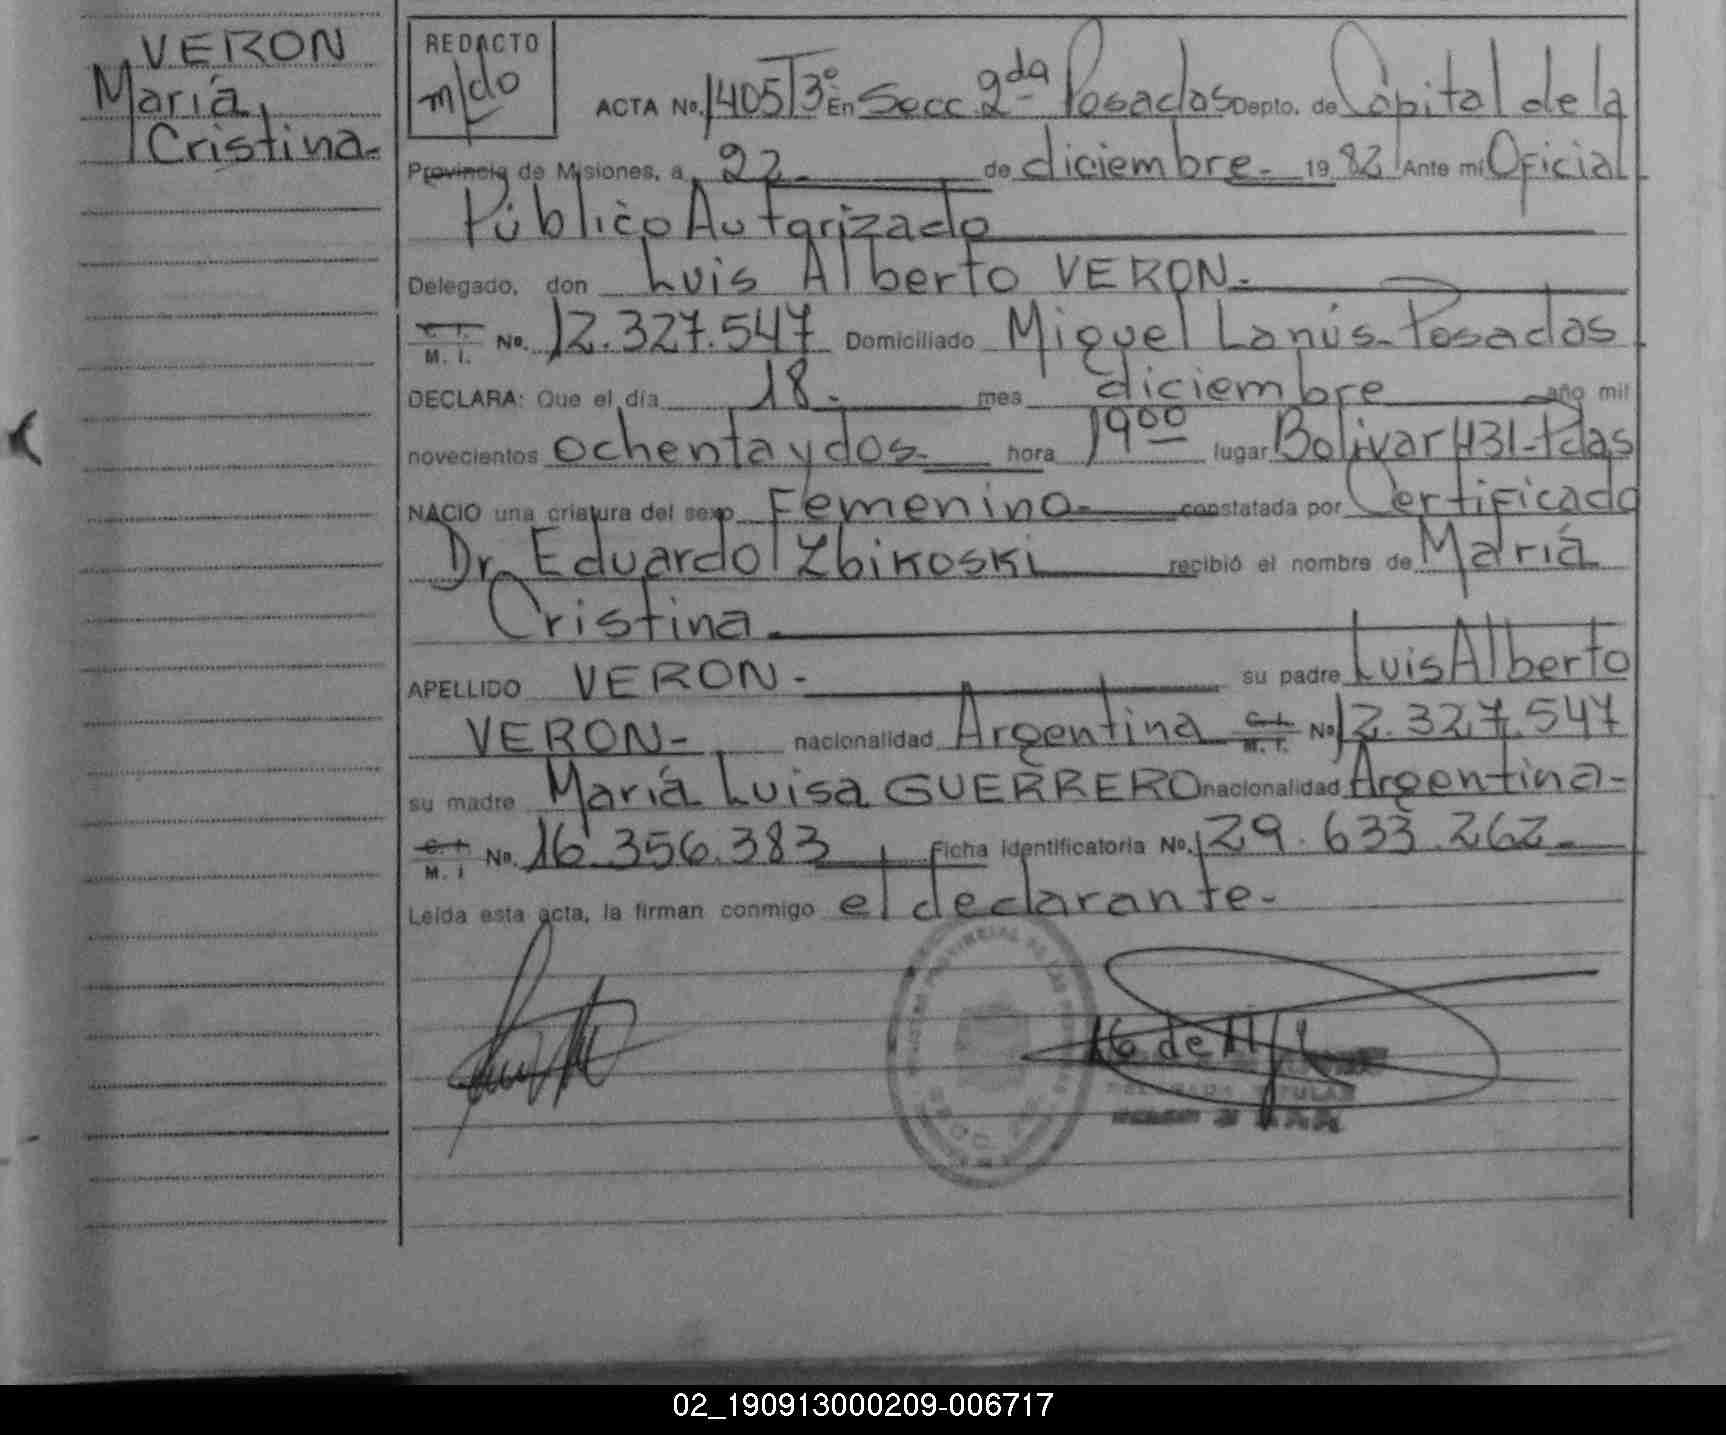 VERON
María
Cristina.
REDACTO
m/do
ACTA No. 1405 T3º En Secc. 2da Posadas Depto. de Capital de la
Provincia de Misiones, a 22 de diciembre 1982 Ante mí Oficial
Público Autorizado
Delegado, don Luis Alberto VERON.
C. I. M. I. No. 12.327.547 Domiciliado Miguel Lanús - Posadas
DECLARA: Que el día 18. mes diciembre año mil
novecientos ochenta y dos hora 1900 lugar Bolivar 431-Pdas
NACIO una criatura del sexo Femenino constatada por Certificado
Dr. Eduardo Zbikoski recibió el nombre de María
Cristina
APELLIDO VERON - su padre Luis Alberto
VERON - nacionalidad Argentina C. I. M. I. No 12.327.547
su madre María Luisa GUERRERO nacionalidad Argentina -
C. I. M. I No. 16.356.383 Ficha identificatoria No. 29.633.262
Leída esta acta, la firman conmigo el declarante -
TITULAR
02_190913000209-006717